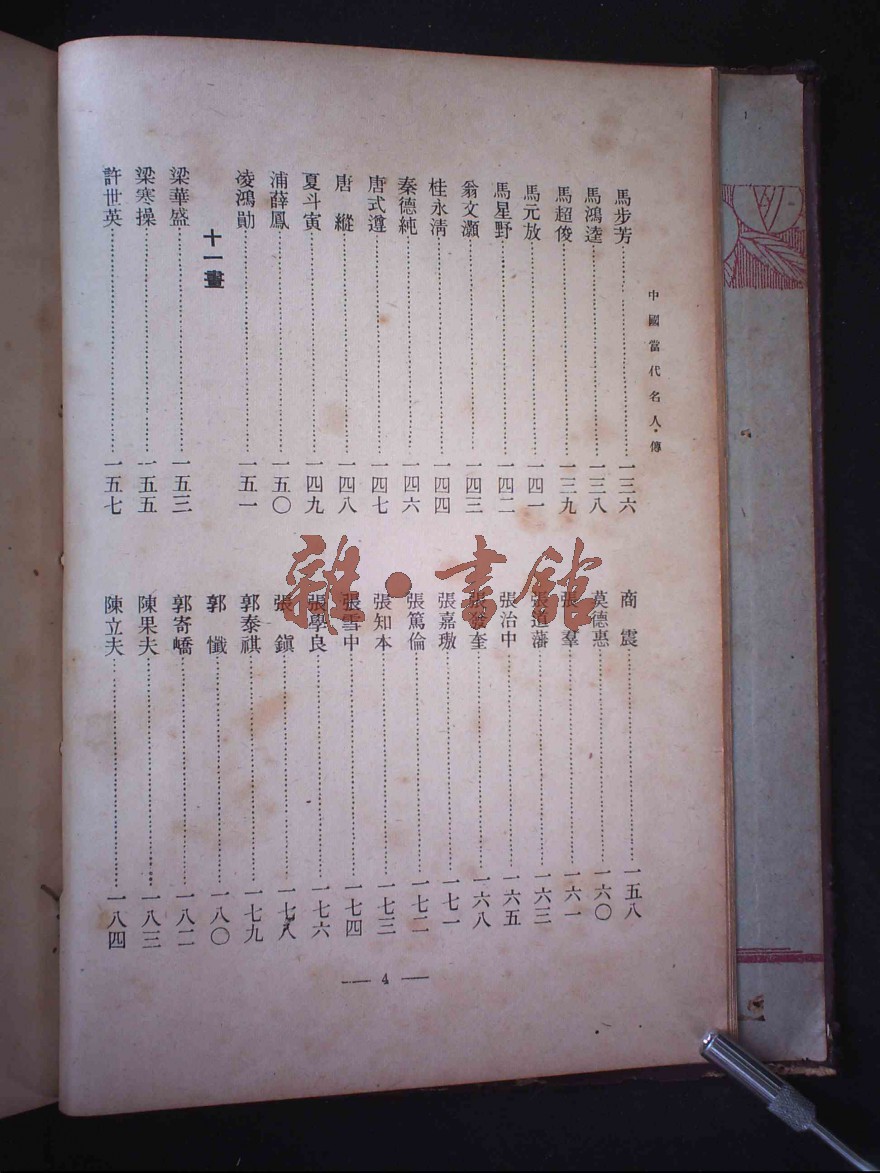 中國當代名人傳
馬步芳 一三六
馬鴻逵 一三八
馬超俊 一三九
馬元放 一四一
馬星野 一四二
翁文灝 一四三
桂永清 一四四
秦德純 一四六
唐式遵 一四七
唐縱 一四八
夏斗寅 一四九
浦薛鳳 一五〇
凌鴻勛 一五一
十一畫
梁華盛 一五三
梁寒操 一五五
許世英 一五七
商震 一五八
莫德惠 一六〇
張羣 一六一
張道藩 一六三
張治中 一六五
張發奎 一六八
張嘉璈 一七一
張篤倫 一七二
張知本 一七三
張雪中 一七四
張學良 一七六
張鎮 一七八
郭泰祺 一七九
郭懺 一八〇
郭寄嶠 一八二
陳果夫 一八三
陳立夫 一八四
— 4 —
雜·書館